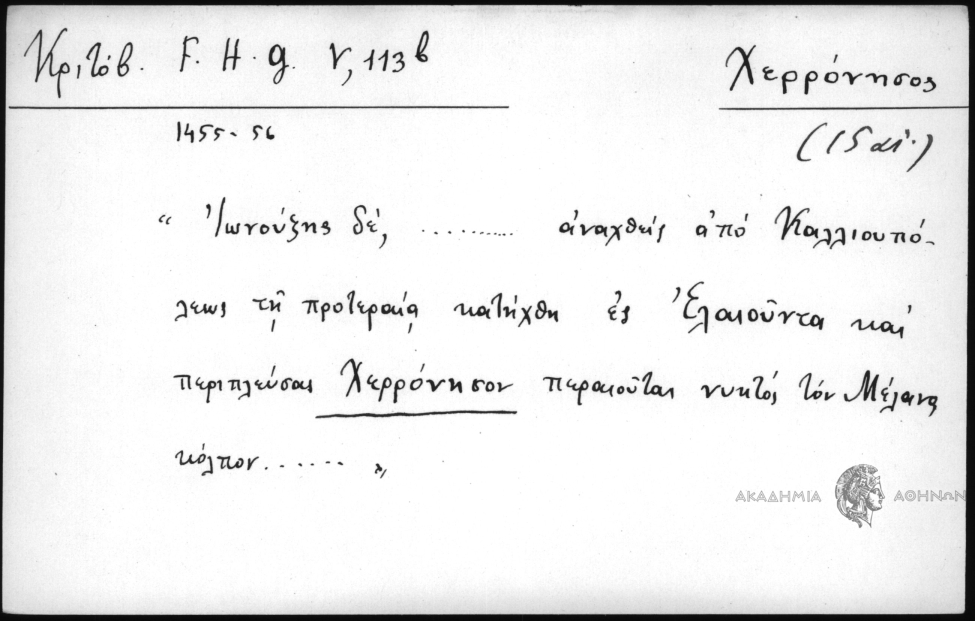 Κριτόβ. F. H. g. V, 113 β
Χερρόνησος
1455-56
(15 αἰ.)
“ Ἰωνούξης δέ, ........... ἀναχθείς ἀπό Καλλιουπό-
λεως τῇ προτεραίᾳ κατήχθη ἐς Ἐλαιοῦντα καί
περιπλεύσας Χερρόνησον περαιοῦται νυκτός τόν Μέλανα
κόλπον....... „
ΑΚΑΔΗΜΙΑ ΑΘΗΝΩΝ